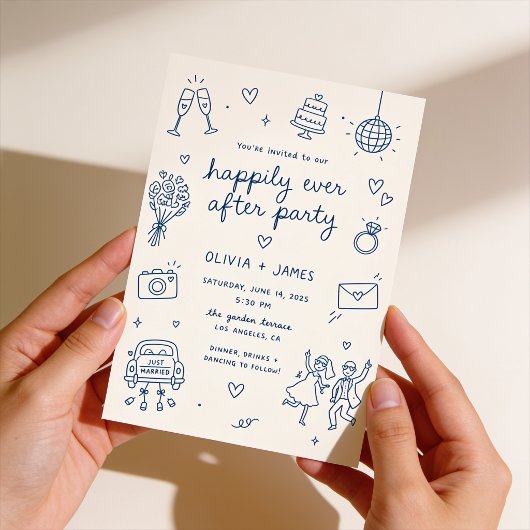 You're invited to our
happily ever
after party
OLIVIA + JAMES
SATURDAY, JUNE 14, 2025
5:30 PM
the garden terrace
LOS ANGELES, CA
DINNER, DRINKS +
DANCING TO FOLLOW!
JUST
MARRIED